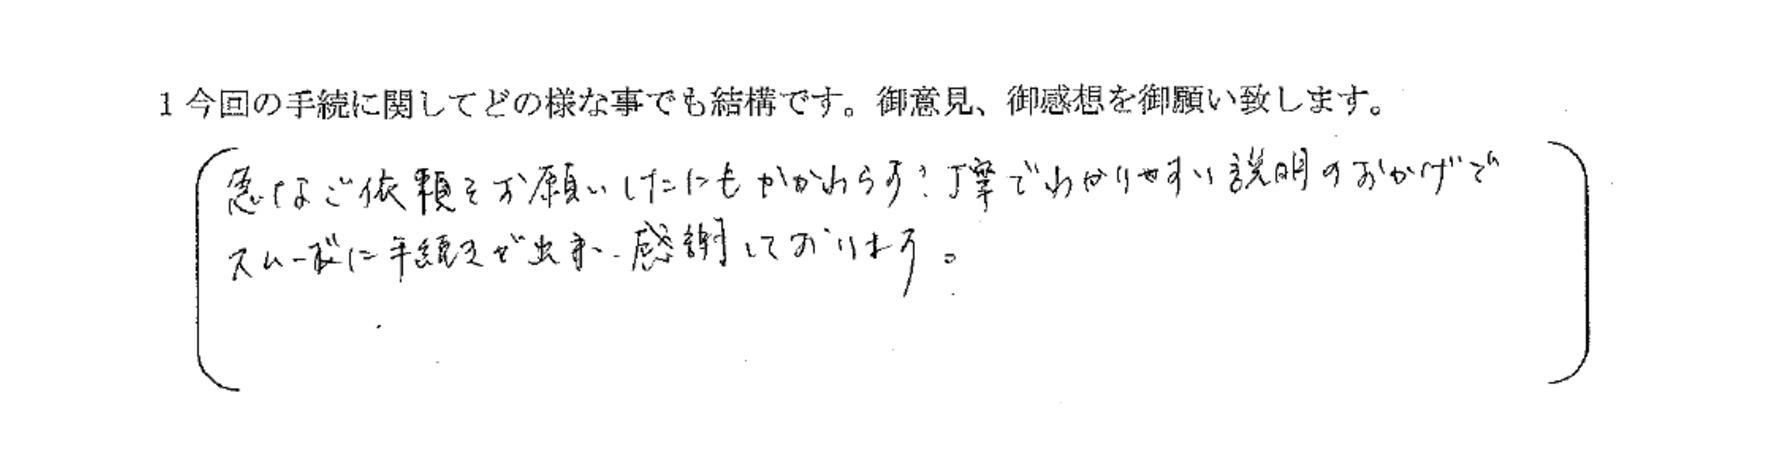 1 今回の手続に関してどの様な事でも結構です。御意見、御感想を御願い致します。
急なご依頼をお願いしたにもかかわらず、丁寧でわかりやすい説明のおかげで
スムーズに手続きが出来、感謝しております。